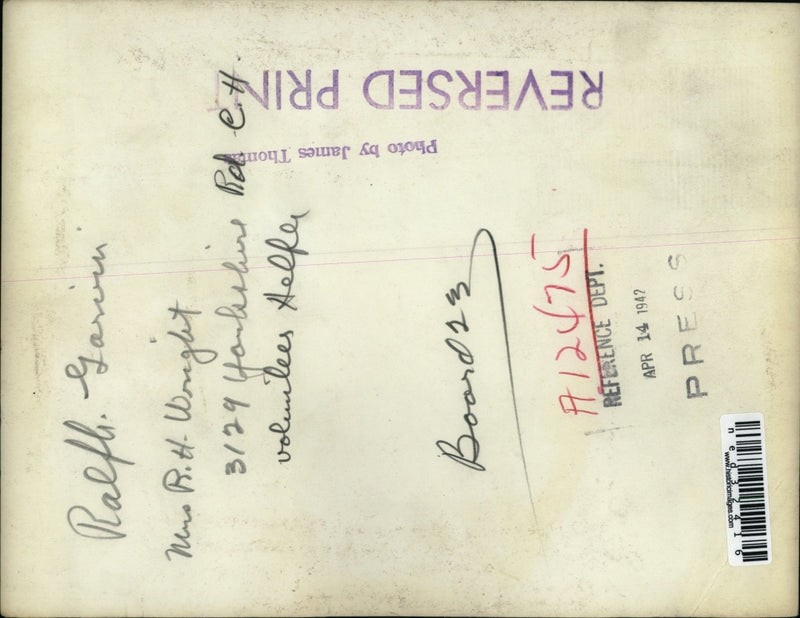 REVERSED PRINT
Photo by James Thomas
Ralph. Garvin
Mrs R. H. Wright
3129 Yorkshire Rd C. H.
volunteer Helper
Board 23
A12475
REFERENCE DEPT.
APR 14 1942
PRESS
www.historicimages.com
ned32416